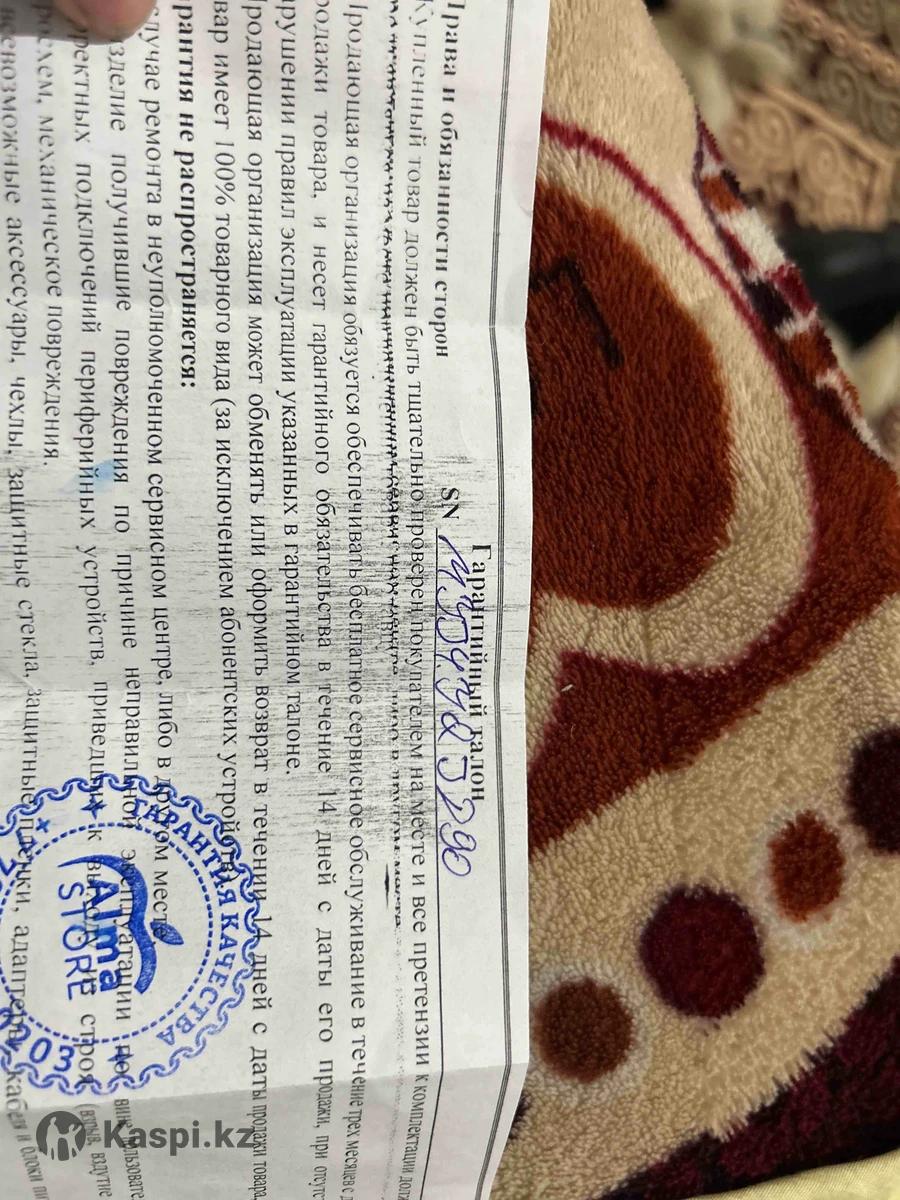 Гарантийный талон
SN
Права и обязанности сторон
Купленный товар должен быть тщательно проверен покупателем на месте и все претензии к комплектации
Продающая организация обязуется обеспечивать бесплатное сервисное обслуживание в течение трех месяцев с
продажи товара, и несет гарантийного обязательства в течение 14 дней с даты его продажи, при
нарушении правил эксплуатации указанных в гарантийном талоне.
Продающая организация может обменять или оформить возврат в течении 14 дней с даты продажи товара
вар имеет 100% товарного вида (за исключением абонентских устройств)
рантия не распространяется:
случае ремонта в неуполномоченном сервисном центре, либо в другом месте
зделие получившие повреждения по причине неправильной эксплуатации по вине
ректных подключений периферийных устройств, приведших к выходу из строя (взрыв, вздутие
механическое повреждения.
всевозможные аксессуары, чехлы, защитные стекла, защитные пленки, адаптеры, кабеля и блоки
ГАРАНТИЯ КАЧЕСТВА
Alma
STORE
Kaspi.kz